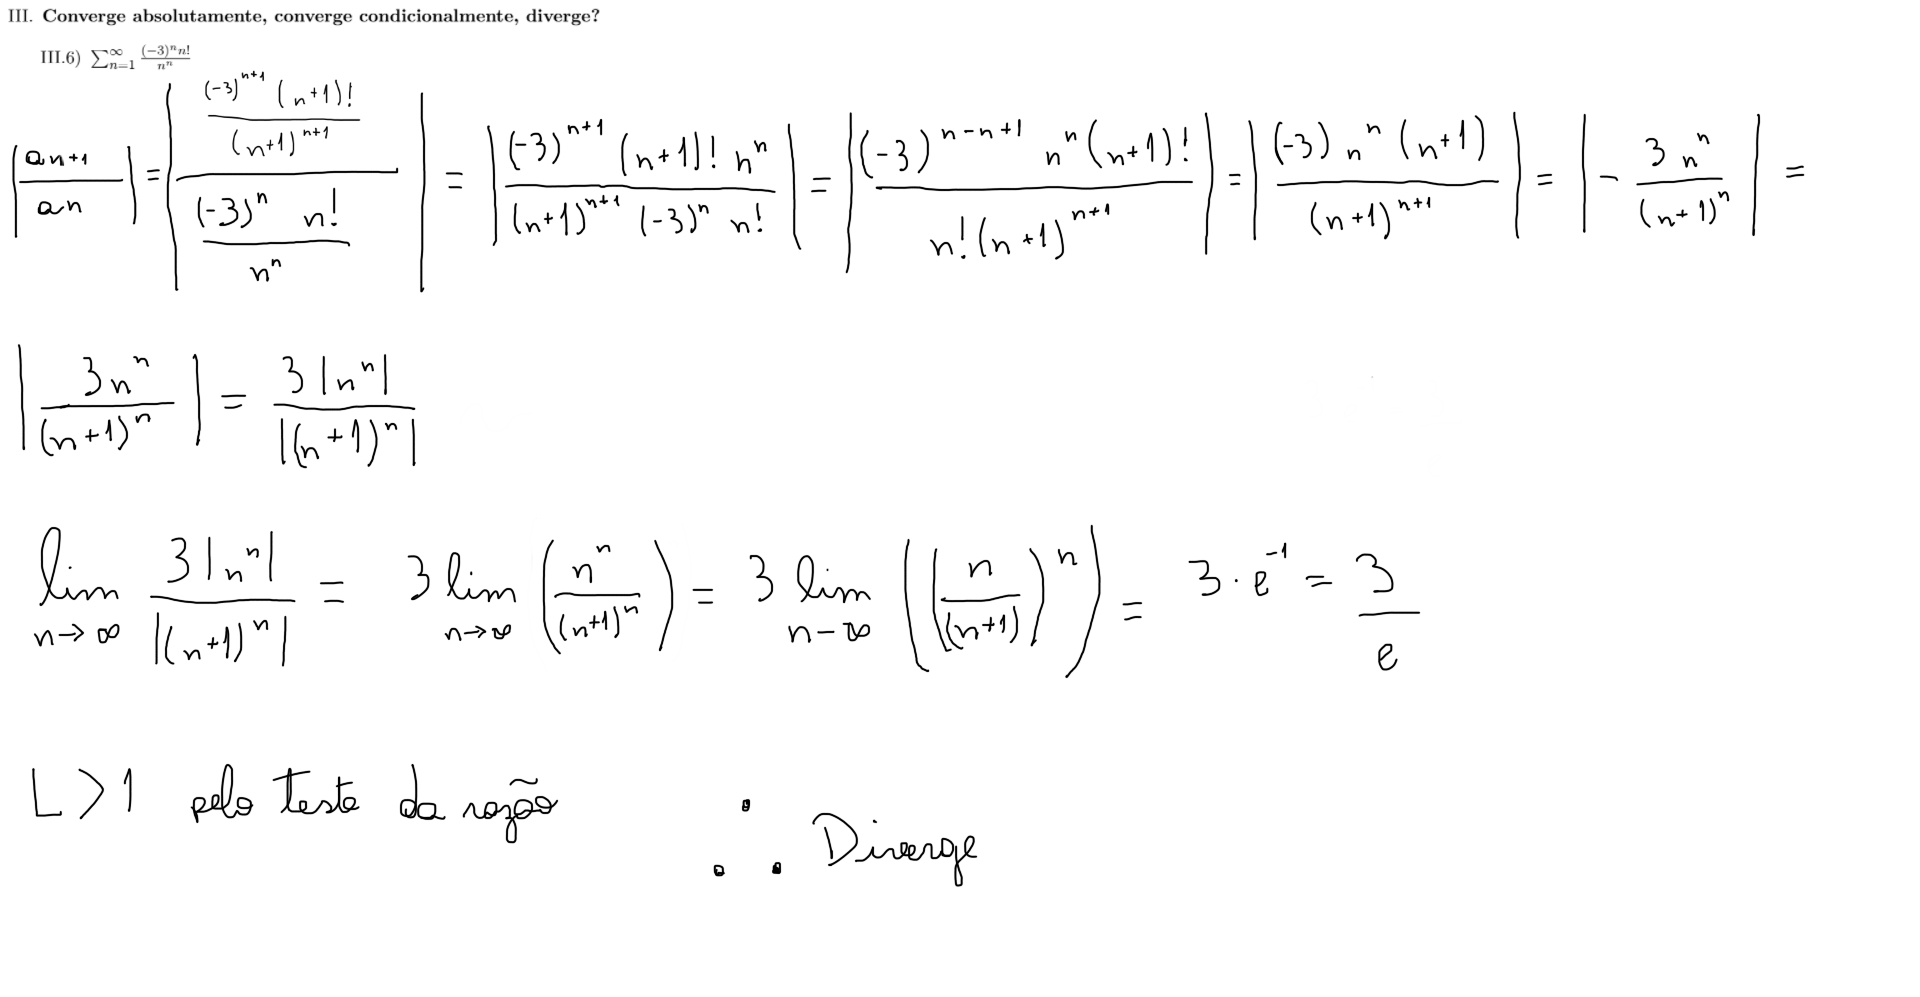 III. Converge absolutamente, converge condicionalmente, diverge?
III.6) ∑_{n=1}^{∞} (-3)^n n! / n^n
|a_{n+1} / a_n| = | ((-3)^{n+1} (n+1)! / (n+1)^{n+1}) / ((-3)^n n! / n^n) | = | (-3)^{n+1} (n+1)! n^n / ((n+1)^{n+1} (-3)^n n!) | = | (-3)^{n-n+1} n^n (n+1)! / (n! (n+1)^{n+1}) | = | (-3) n^n (n+1) / (n+1)^{n+1} | = | - 3 n^n / (n+1)^n | =
| 3n^n / (n+1)^n | = 3|n^n| / |(n+1)^n|
lim_{n→∞} 3|n^n| / |(n+1)^n| = 3 lim_{n→∞} (n^n / (n+1)^n) = 3 lim_{n-∞} ((n / (n+1))^n) = 3 · e^{-1} = 3 / e
L > 1 pelo teste da razão ∴ Diverge